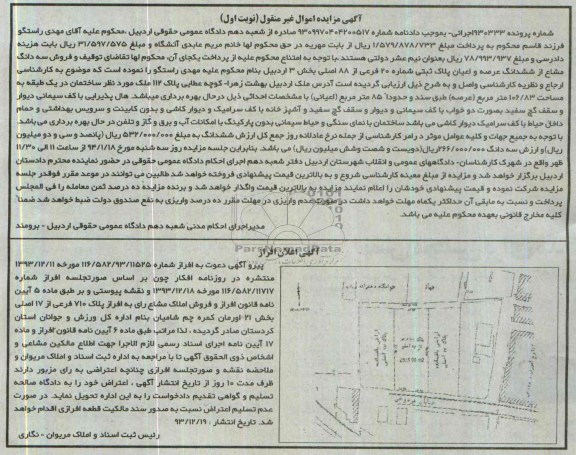 آگهی مزایده اموال غیر منقول (نوبت اول)
شماره پرونده ۹۳۰۳۳۳اجرائی- بموجب دادنامه شماره ۹۳۰۹۹۷۰۴۰۴۲۰۰۵۱۷ صادره از شعبه دهم دادگاه عمومی حقوقی اردبیل ،محکوم علیه آقای مهدی راستگو
فرزند قاسم محکوم به پرداخت مبلغ ۱/۵۷۹/۸۷۸/۷۳۳ ریال از بابت مهریه در حق محکوم لها خانم مریم عابدی آتشگاه و مبلغ ۳۱/۵۹۷/۵۷۵ ریال بابت هزینه
دادرسی و مبلغ ۷۸/۹۹۳/۹۳۷ ریال بعنوان نیم عشر دولتی هستند.با توجه به امتناع محکوم علیه از پرداخت یکجای آن، محکوم لها تقاضای توقیف و فروش سه دانگ
مشاع از ششدانگ عرصه و اعیان پلاک ثبتی شماره ۲۰ فرعی از ۸۸ اصلی بخش ۳ اردبیل بنام محکوم علیه مهدی راستگو را نموده است که موضوع به کارشناسی
ارجاع و نظریه کارشناسی واصل و به شرح ذیل ارزیابی گردیده است آدرس ملک اردبیل بهشت زهرا- کوچه عطایی پلاک ۱۱۲ ملک مورد نظر ساختمان در یک طبقه به
مساحت ۱۰۶/۸۲ متر مربع (عرصه) طبق سند و حدودا" ۸۵ متر مربع (اعیانی) با مشخصات احداثی ذیل در حال بهره برداری میباشد. هال پذیرایی با کف سیمانی دیوار
و سقف گچ سفید بصورت دو خواب با کف سیمانی و دیوار و سقف گچ سفید و آشپز خانه با کف سرامیک و دیوار کاشی و بدون کابینت و سرویس بهداشتی و حمام
داخل حیاط با کف سرامیک دیوار کاشی می باشد ساختمان با نمای سنگی و حیاط سیمانی بدون پارکینگ با امکانات آب و برق و گاز و تلفن در حال بهره برداری می باشد.
با توجه به جمیع جهات و کلیه عوامل موثر در امر کارشناسی از جمله نرخ عادلانه روز جمع کل ارزش ششدانگ به مبلغ ۵۳۲/۰۰۰/۰۰۰ ریال (پانصد و سی و دو میلیون
ریال)و ارزش سه دانگ ۲۶۶/۰۰۰/۰۰۰ریال(دویست و شصت وشش میلیون ریال) می باشد. بنابراین جلسه مزایده روز سه شنبه مورخ ۹۴/۱/۱۸ از ساعت ۱۱ الی ۱۱/۳۰
ظهر واقع در شهرک کارشناسان- دادگاههای عمومی و انقلاب شهرستان اردبیل دفتر شعبه دهم اجرای احکام دادگاه عمومی حقوقی در حضور نماینده محترم دادستان
اردبیل برگزار خواهد شد و مزایده از مبلغ معینه کارشناسی شروع و به بالاترین قیمت پیشنهادی فروخته خواهد شد.طالبین می توانند در موعد مقرر فوقدر جلسه
مزایده شرکت نموده و قیمت پیشنهادی خودشان را اعلام نمایند.مزایده به بالاترین قیمت واگذار خواهد شد و برنده مزایده ده درصد ثمن معامله را فی المجلس
پرداخت و نسبت به مابقی آن حداکثر یکماه مهلت خواهد داشت درصورت عدم واریزی در مهلت مقرر ده درصد واریزی به نفع صندوق دولت ضبط خواهد شد ضمنا"
کلیه مخارج قانونی بعهده محکوم علیه می باشد.
مدیراجرای احکام مدنی شعبه دهم دادگاه عمومی حقوقی اردبیل - برومند
آگهی اعلان افراز
پیرو آگهی دعوت به افراز شماره ۱۱۶/۵۸۲/۹۳/۱۱۵۲۵ مورخه ۱۳۹۳/۱۲/۱۱
منتشره در روزنامه افکار چون بر اساس صورتجلسه افراز شماره
۱۱۶/۵۸۲/۱۱۷۱۷ مورخه ۱۳۹۳/۱۲/۱۸ و نقشه پیوستی و بر طبق ماده ۵ آیین
نامه قانون افراز و فروش املاک مشاع رای به افراز پلاک ۷۱۰ فرعی از ۱۷ اصلی
بخش ۲۱ اورمان کمره چم شامیان بنام اداره کل ورزش و جوانان استان
کردستان صادر گردیده ، لذا مراتب طبق ماده ۶ آیین نامه قانون افراز و ماده
۱۷ آیین نامه اجرای اسناد رسمی لازم الاجرا جهت اطلاع مالکین مشاعی و
اشخاص ذوی الحقوق آگهی تا با مراجعه به اداره ثبت اسناد و املاک مریوان و
ملاحضه نقشه و صورتجلسه افرازی چنانچه اعتراضی به رای مزبور دارند
ظرف مدت ۱۰ روز از تاریخ انتشار آگهی ، اعتراض خود را به دادگاه صالحه
تسلیم و گواهی تقدیم دادخواست را به این اداره تحویل نماید. در صورت
عدم تسلیم اعتراض نسبت به صدور سند مالکیت قطعه افرازی اقدام خواهد
شد. تاریخ انتشار : ۹۳/۱۲/۱۹
رئیس ثبت اسناد و املاک مریوان - نگاری